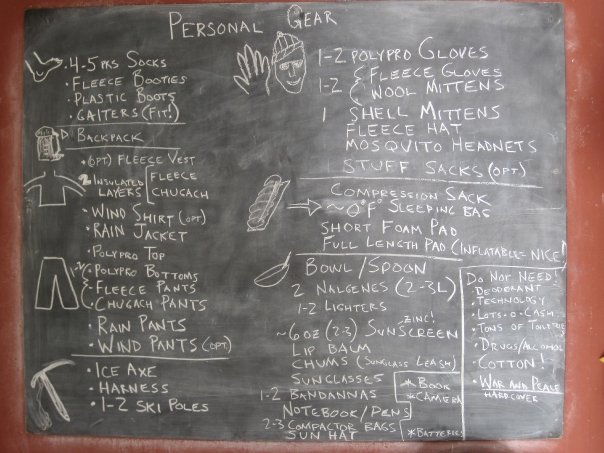 PERSONAL GEAR
• 4-5 PRS SOCKS
• FLEECE BOOTIES
• PLASTIC BOOTS
• GAITERS (FIT!)
BACKPACK
• (OPT) FLEECE VEST
2 INSULATED LAYERS { FLEECE
CHUGACH
• WIND SHIRT (OPT)
• RAIN JACKET
• POLYPRO TOP
• POLYPRO BOTTOMS
• FLEECE PANTS
• CHUGACH PANTS
• RAIN PANTS
• WIND PANTS (OPT)
• ICE AXE
• HARNESS
• 1-2 SKI POLES
1-2 POLYPRO GLOVES
1-2 { FLEECE GLOVES
WOOL MITTENS
1 SHELL MITTENS
FLEECE HAT
MOSQUITO HEADNETS
STUFF SACKS (OPT)
COMPRESSION SACK
→ ~0°F SLEEPING BAG
SHORT FOAM PAD
FULL LENGTH PAD (INFLATABLE = NICE)
BOWL/SPOON
2 NALGENES (2-3L)
1-2 LIGHTERS
ZINC!
~6 OZ (2-3) SUNSCREEN
LIP BALM
CHUMS (SUNGLASS LEASH)
SUNGLASSES
1-2 BANDANNAS
NOTEBOOK/PENS
2-3 COMPACTOR BAGS
SUN HAT
* BOOK
* CAMERA
* BATTERIES
DO NOT NEED!
• DEODORANT
• TECHNOLOGY
• LOTS-O-CASH
• TONS OF TOILETRIES
• DRUGS/ALCOHOL
• COTTON!
• WAR AND PEACE
HARDCOVER